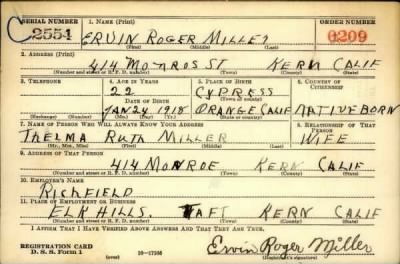 SERIAL NUMBER 1. NAME (Print) ORDER NUMBER
C 2551 ERVIN ROGER MILLER 0209
(First) (Middle) (Last)
2. ADDRESS (Print)
414 MONROS ST KERN CALIF
(Number and street or R. F. D. number) (Town) (County) (State)
3. TELEPHONE 4. AGE IN YEARS 5. PLACE OF BIRTH 6. COUNTRY OF CITIZENSHIP
22 CYPRESS
DATE OF BIRTH (Town or county)
JAN 24 1918 ORANGE CALIF NATIVE BORN
(Exchange) (Number) (Mo.) (Day) (Yr.) (State or country)
7. NAME OF PERSON WHO WILL ALWAYS KNOW YOUR ADDRESS 8. RELATIONSHIP OF THAT PERSON
THELMA RUTH MILLER WIFE
(Mr., Mrs., Miss) (First) (Middle) (Last)
9. ADDRESS OF THAT PERSON
414 MONROE KERN CALIF
(Number and street or R. F. D. number) (Town) (County) (State)
10. EMPLOYER'S NAME
RICHFIELD
11. PLACE OF EMPLOYMENT OR BUSINESS
ELK HILLS. TAFT KERN CALIF
(Number and street or R. F. D. number) (Town) (County) (State)
I AFFIRM THAT I HAVE VERIFIED ABOVE ANSWERS AND THAT THEY ARE TRUE.
REGISTRATION CARD
D. S. S. FORM 1 Ervin Roger Miller
(over) (Registrant's signature)